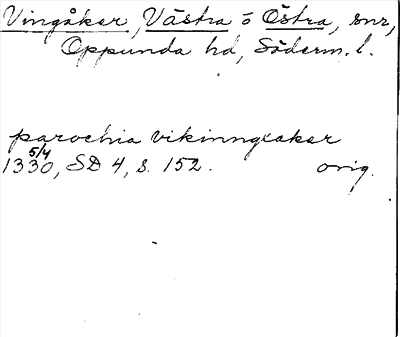 Vingåker, Västra o Östra, snr,
Oppunda hd, Söderm. l.
parochia vikinngxaker
5/4
1330, SD 4, s. 152. orig.